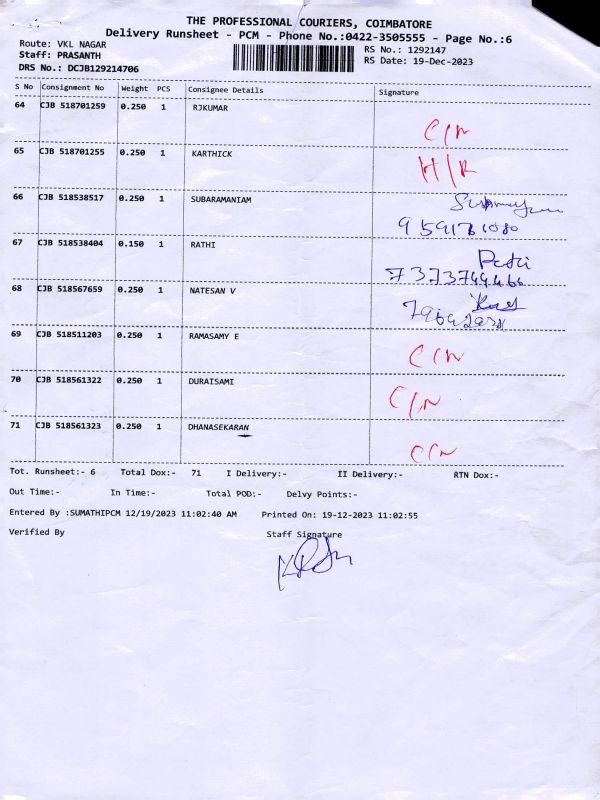 THE PROFESSIONAL COURIERS, COIMBATORE
Delivery Runsheet - PCM - Phone No.:0422-3505555 - Page No.:6
Route: VKL NAGAR
RS No.: 1292147
Staff: PRASANTH
RS Date: 19-Dec-2023
DRS No.: DCJB129214706
S No Consignment No Weight PCS Consignee Details Signature
64 CJB 518701259 0.250 1 RJKUMAR
C/N
65 CJB 518701255 0.250 1 KARTHICK
H/R
66 CJB 518538517 0.250 1 SUBARAMANIAM
67 CJB 518538404 0.150 1 RATHI
68 CJB 518567659 0.250 1 NATESAN V
69 CJB 518511203 0.250 1 RAMASAMY E
C/N
70 CJB 518561322 0.250 1 DURAISAMI
C/N
71 CJB 518561323 0.250 1 DHANASEKARAN
C/N
Tot. Runsheet:- 6 Total Dox:- 71 I Delivery:- II Delivery:- RTN Dox:-
Out Time:- In Time:- Total POD:- Delvy Points:-
Entered By :SUMATHIPCM 12/19/2023 11:02:40 AM Printed On: 19-12-2023 11:02:55
Verified By Staff Signature